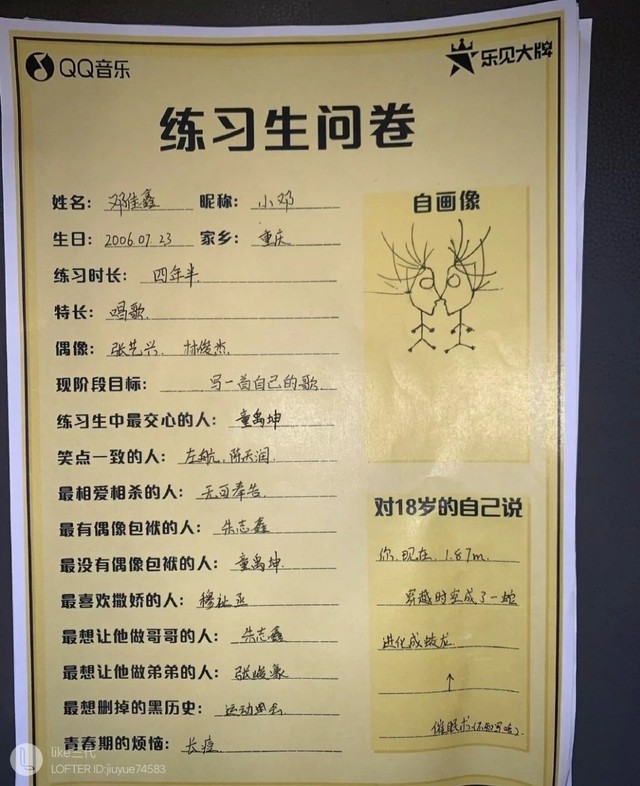 QQ音乐
乐见大牌
练习生问卷
姓名：邓佳鑫 昵称：小邓
生日：2006.07.23 家乡：重庆
练习时长：四年半
特长：唱歌.
偶像：张艺兴、林俊杰.
现阶段目标：写一首自己的歌
练习生中最交心的人：童禹坤
笑点一致的人：左航、陈天润.
最相爱相杀的人：无可奉告.
最有偶像包袱的人：朱志鑫
最没有偶像包袱的人：童禹坤.
最喜欢撒娇的人：穆祉丞
最想让他做哥哥的人：朱志鑫
最想让他做弟弟的人：张峻豪
最想删掉的黑历史：运动会
青春期的烦恼：长痘.
自画像
对18岁的自己说
你现在 1.87m.
穿越时空成了一蛇
进化成蛟龙
↑
催眠术
like三代
LOFTER ID:jiuyue74583